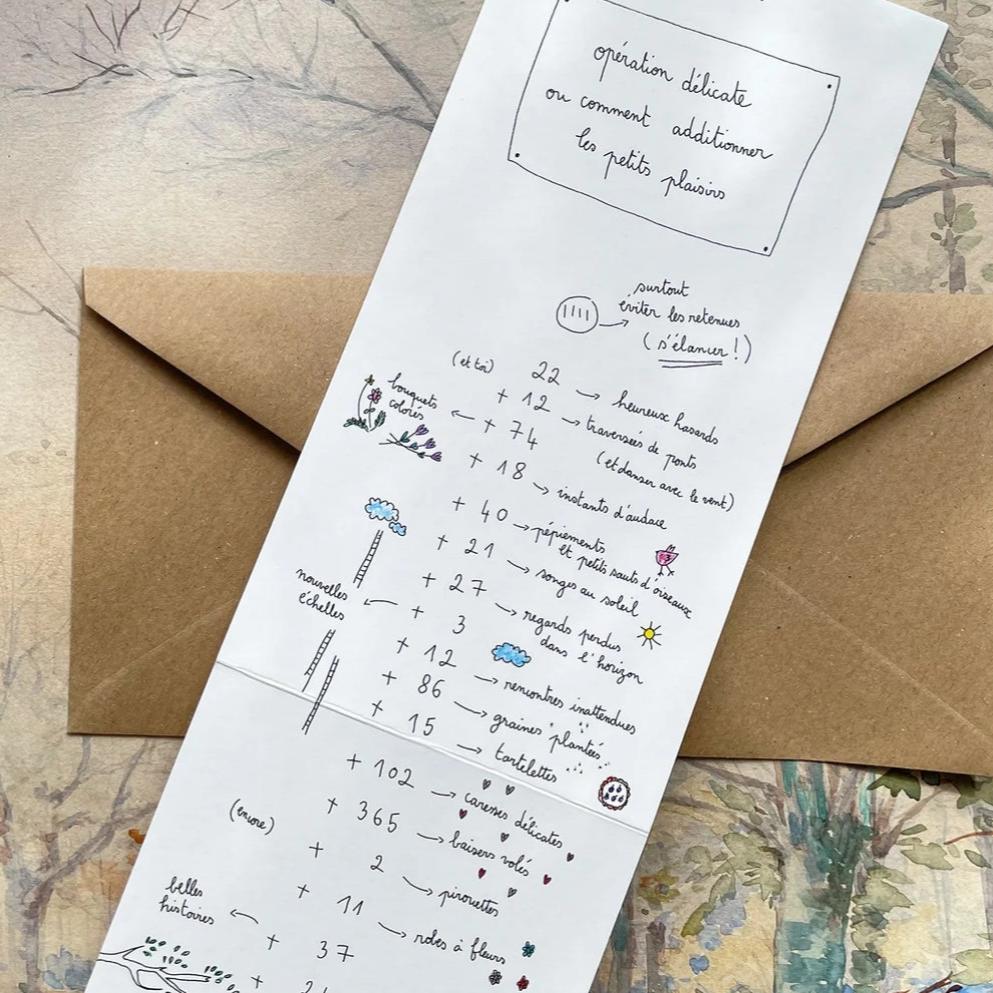 opération délicate
ou comment additionner
les petits plaisirs
surtout
éviter les retenues
(s'élancer !)
(et toi)
22 → heureux hasards
+ 12 → traversées de ponts
(et danser avec le vent)
bouquets
colorés
← + 74
+ 18 → instants d'audace
+ 40 → pépiements
et petits sauts d'oiseaux
+ 21 → songes au soleil
+ 27 → regards perdus
dans l'horizon
nouvelles
échelles
← + 3
+ 12 → rencontres inattendues
+ 86 → graines plantées
+ 15 → tartelettes
+ 102 → caresses délicates
+ 365 → baisers volés
(encore)
+ 2 → pirouettes
+ 11 → robes à fleurs
belles
histoires
← + 37
+